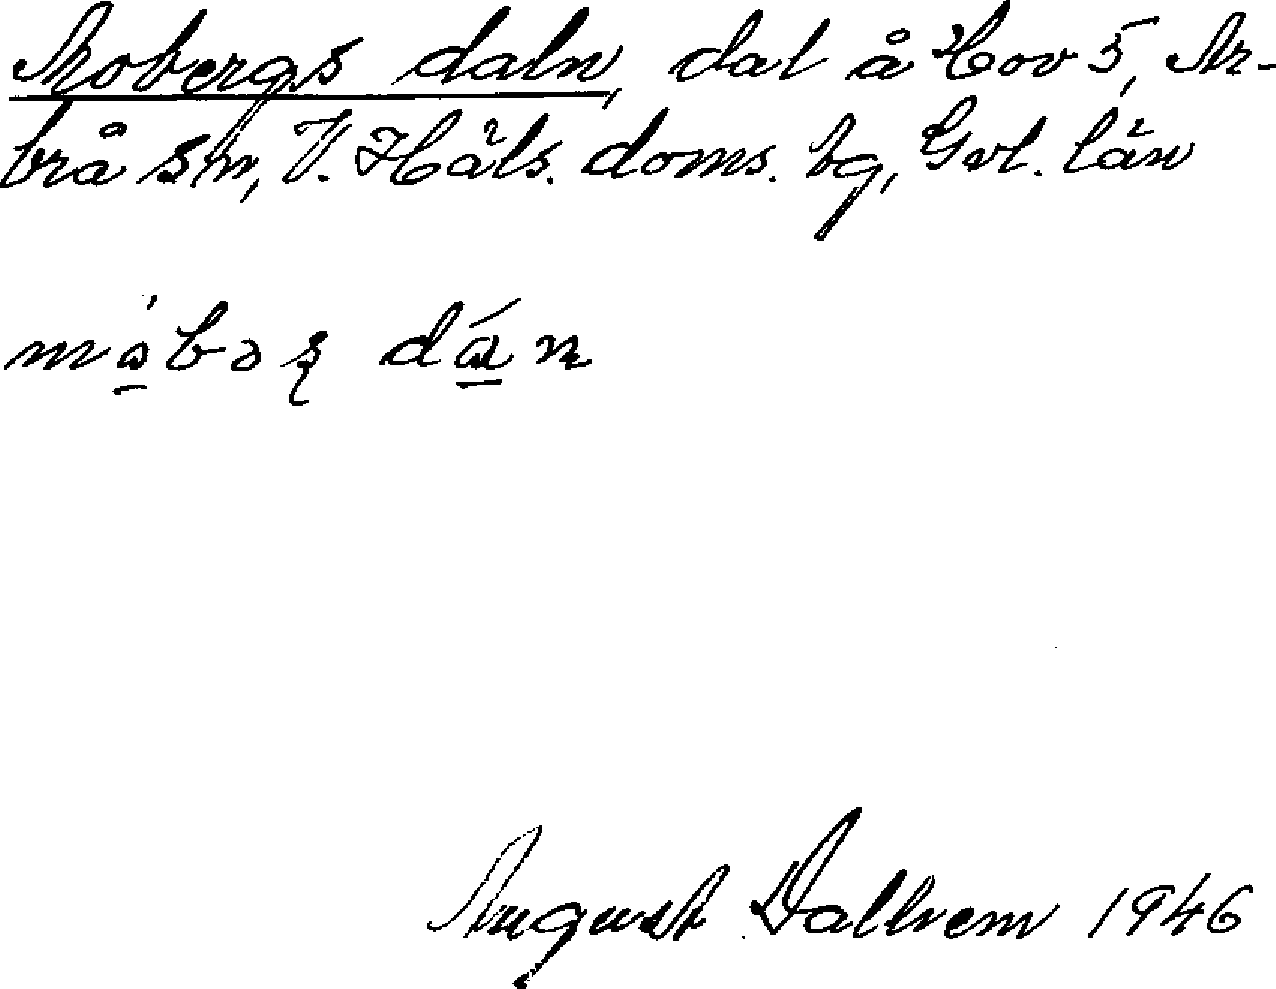 Mobergs daln, dal å Hov 5, Ar-
brå sn, V. Häls. doms. bg, Gvl. län
mo̱bəʂ dá̱n
August Dallvem 1946